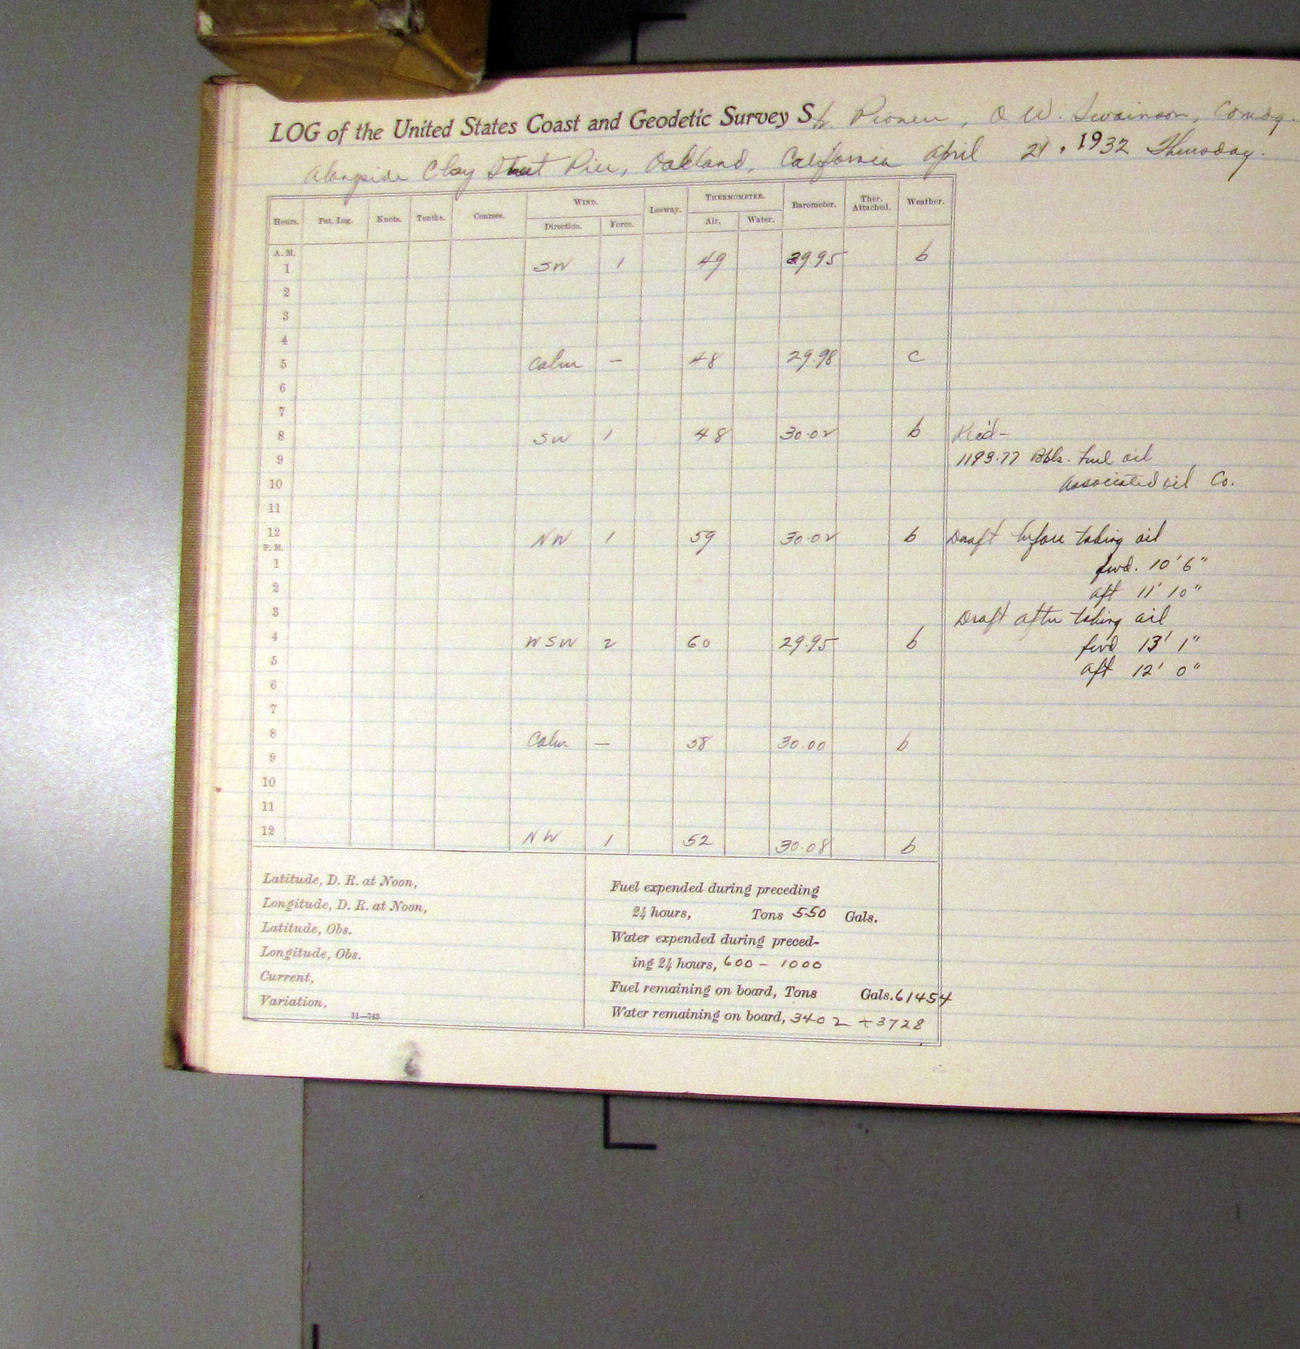 LOG of the United States Coast and Geodetic Survey Sh. Pioneer, O. W. Swainson, Comdg.
Alongside Clay Street Pier, Oakland, California April 21, 1932 Thursday.
Hours. Pat. Log. Knots. Tenths. Courses. WIND. Leeway. THERMOMETER. Barometer. Ther. Attached. Weather.
Direction. Force. Air. Water.
A. M.
1 SW 1 49 29.95 b
2
3
4
5 Calm — 48 29.98 c
6
7
8 SW 1 48 30.02 b Rec'd—
9 1193.77 Bbls. fuel oil
10 Associated oil Co.
11
12 NW 1 59 30.02 b Draft before taking oil
P. M.
1 fwd. 10' 6"
2 aft 11' 10"
3 Draft after taking oil
4 WSW 2 60 29.95 b fwd 13' 1"
5 aft 12' 0"
6
7
8 Calm — 58 30.00 b
9
10
11
12 NW 1 52 30.08 b
Latitude, D. R. at Noon,
Longitude, D. R. at Noon,
Latitude, Obs.
Longitude, Obs.
Current,
Variation,
11—763
Fuel expended during preceding
24 hours, Tons 550 Gals.
Water expended during preced-
ing 24 hours, 600 - 1000
Fuel remaining on board, Tons Gals. 61454
Water remaining on board, 3402 + 3728